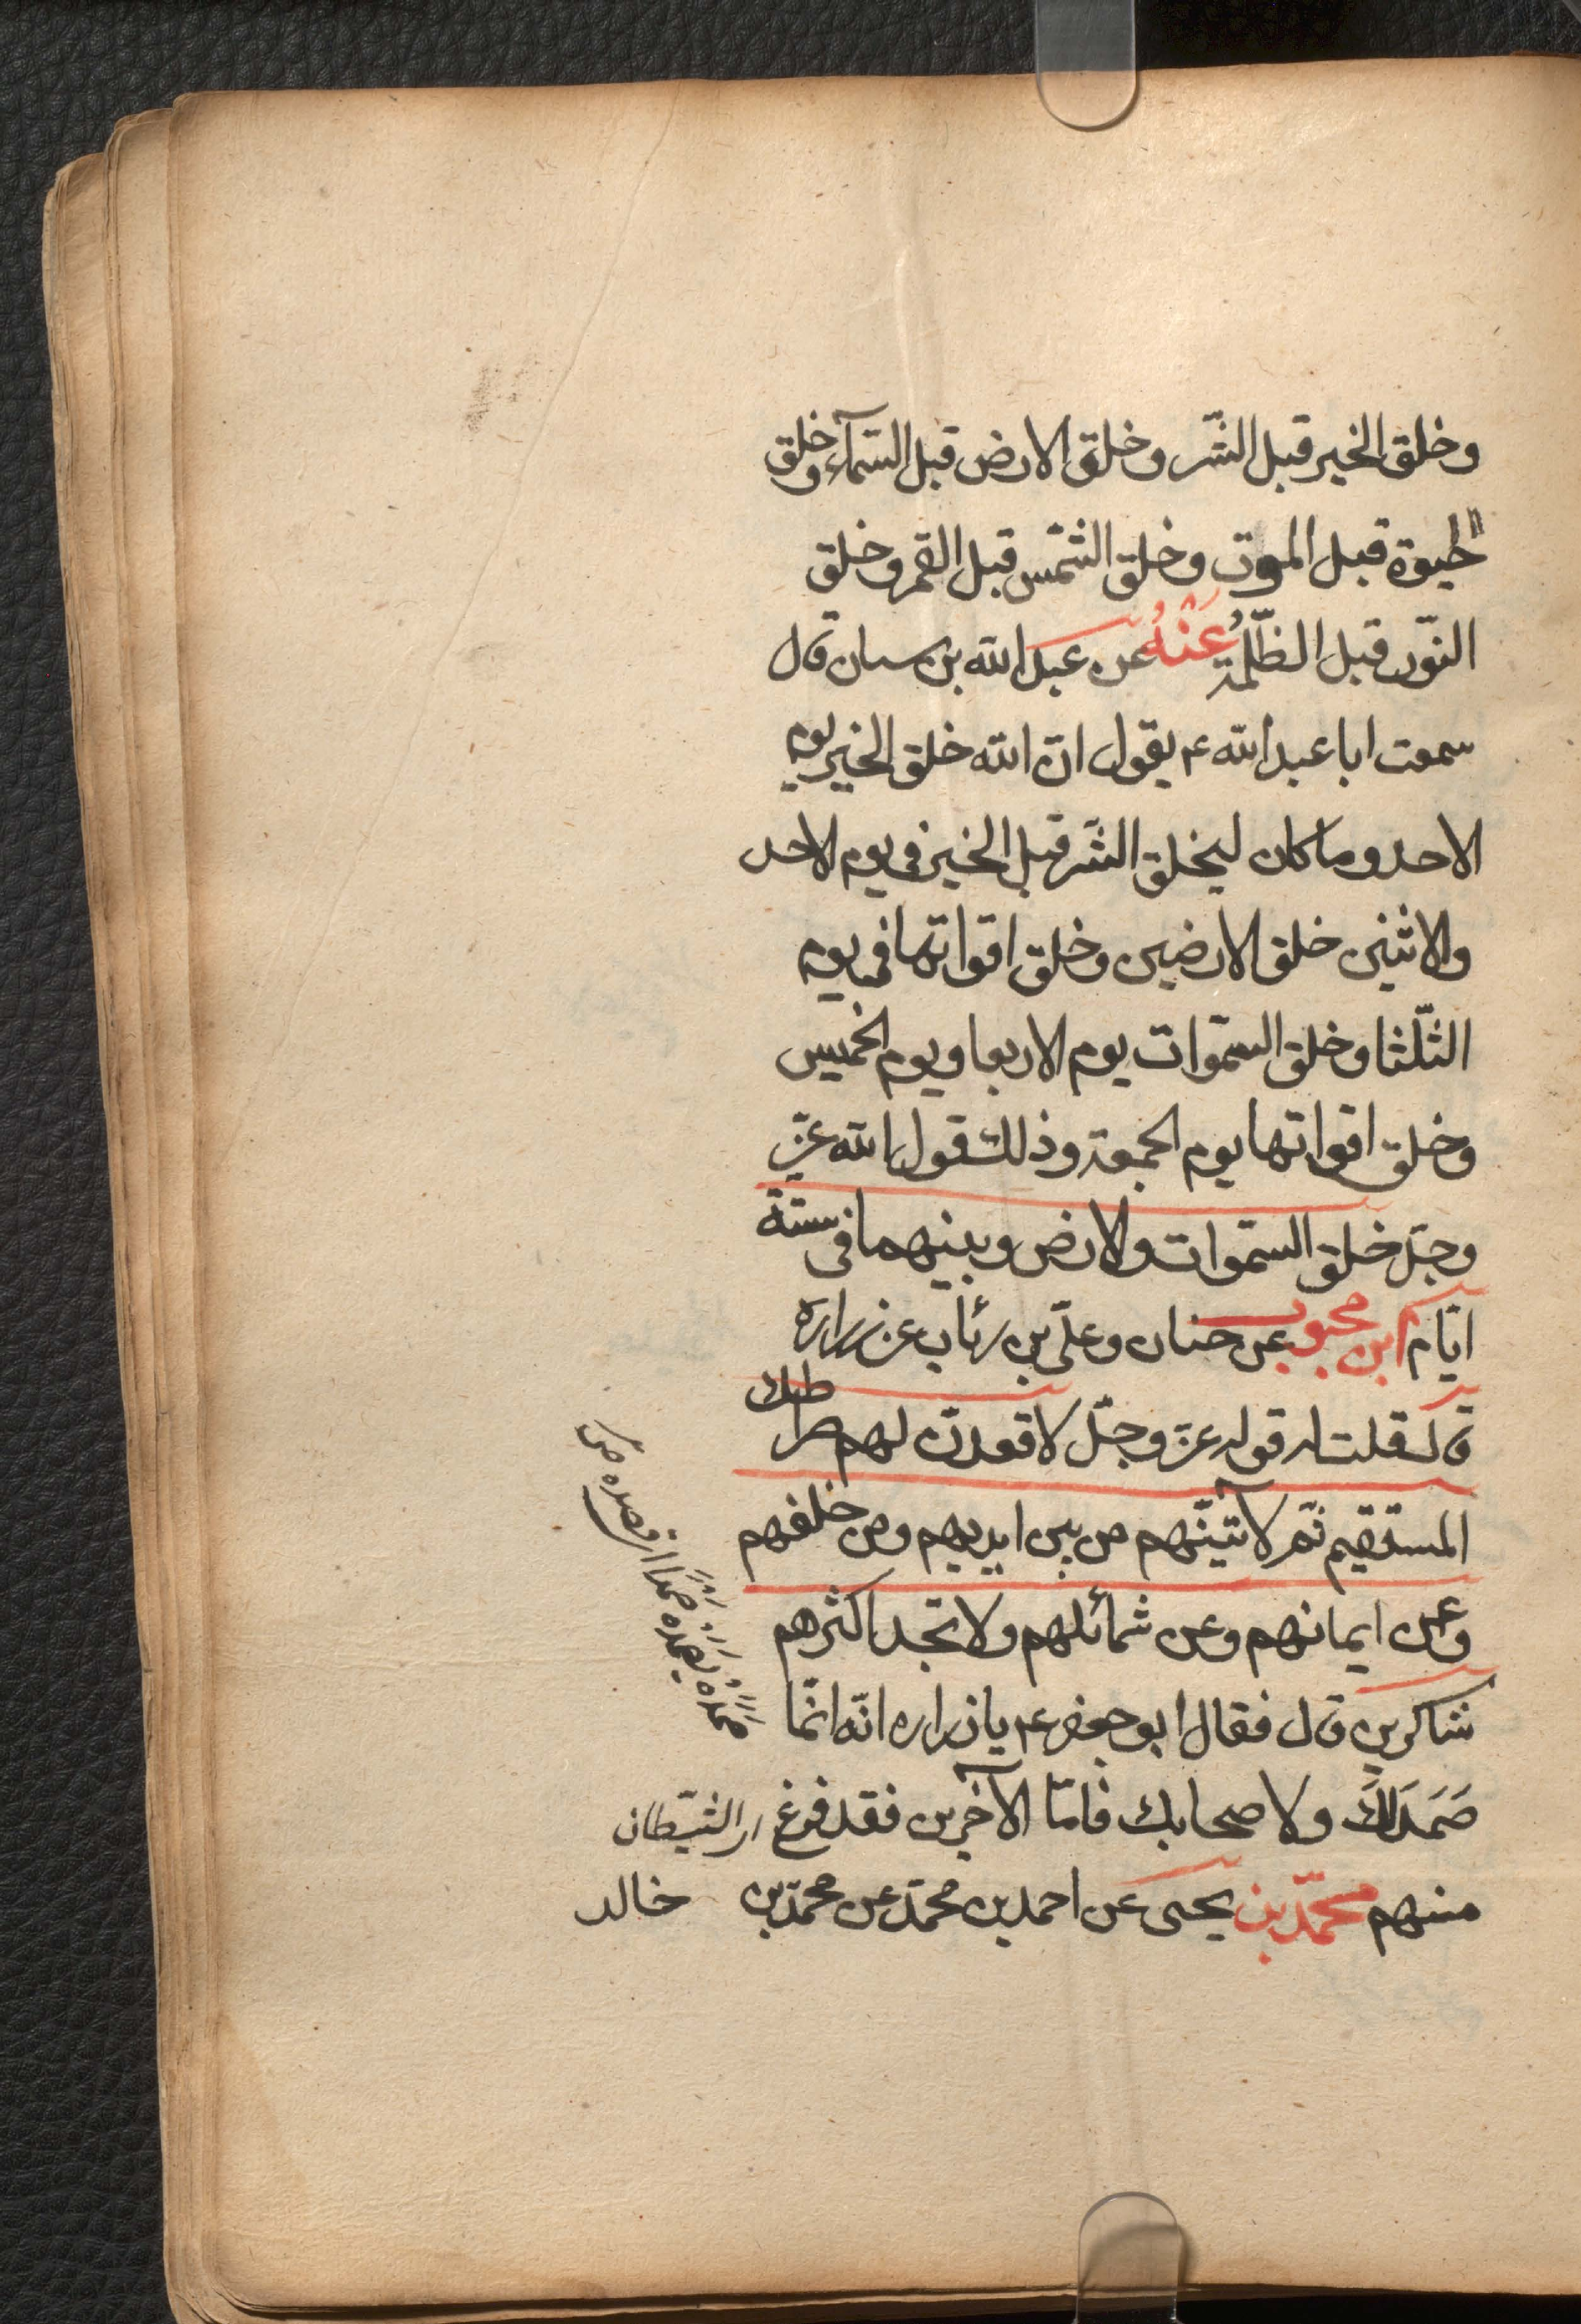 وخلق الخير قبل الشّر وخلق الارض قبل السّمآء وخلق
الحيوة قبل الموت وخلق الشّمس قبل القمر وخلق
النّور قبل الظّلمة عَنْهُ عن عبد الله بن سنان قال
سمعت ابا عبد الله ع يقول انّ الله خلق الخير يوم
الاحد وما كان ليخلق الشّر قبل الخير في يوم الاحد
والاثنين خلق الارضين وخلق اقواتها في يوم
الثّلثا وخلق السّموات يوم الاربعا ويوم الخميس
وخلق اقواتها يوم الجمعة وذلك قول الله عزّ
وجلّ خلق السّموات والارض وبينهما في ستّة
ايّام ابن محبوب عن حنان وعلىّ بن رئاب عن زراره
قال قلت له قوله عزّ وجلّ لاقعدنّ لهم صراطك
المستقيم ثمّ لآتينّهم من بين ايديهم ومن خلفهم
وعن ايمانهم وعن شمائلهم ولا تجد اكثرهم
شاكرين قال فقال ابو جعفر ع يا زراره انّه انّما
صَمَدَ لَكَ ولاصحابك فامّا الآخرين فقد فرغ اى الشّيطان
منهم محمّد بن يحيى عن احمد بن محمّد عن محمّد بن خالد
صَمَدَهُ يَصْمِدُهُ صَمْدًا اى قصده ص